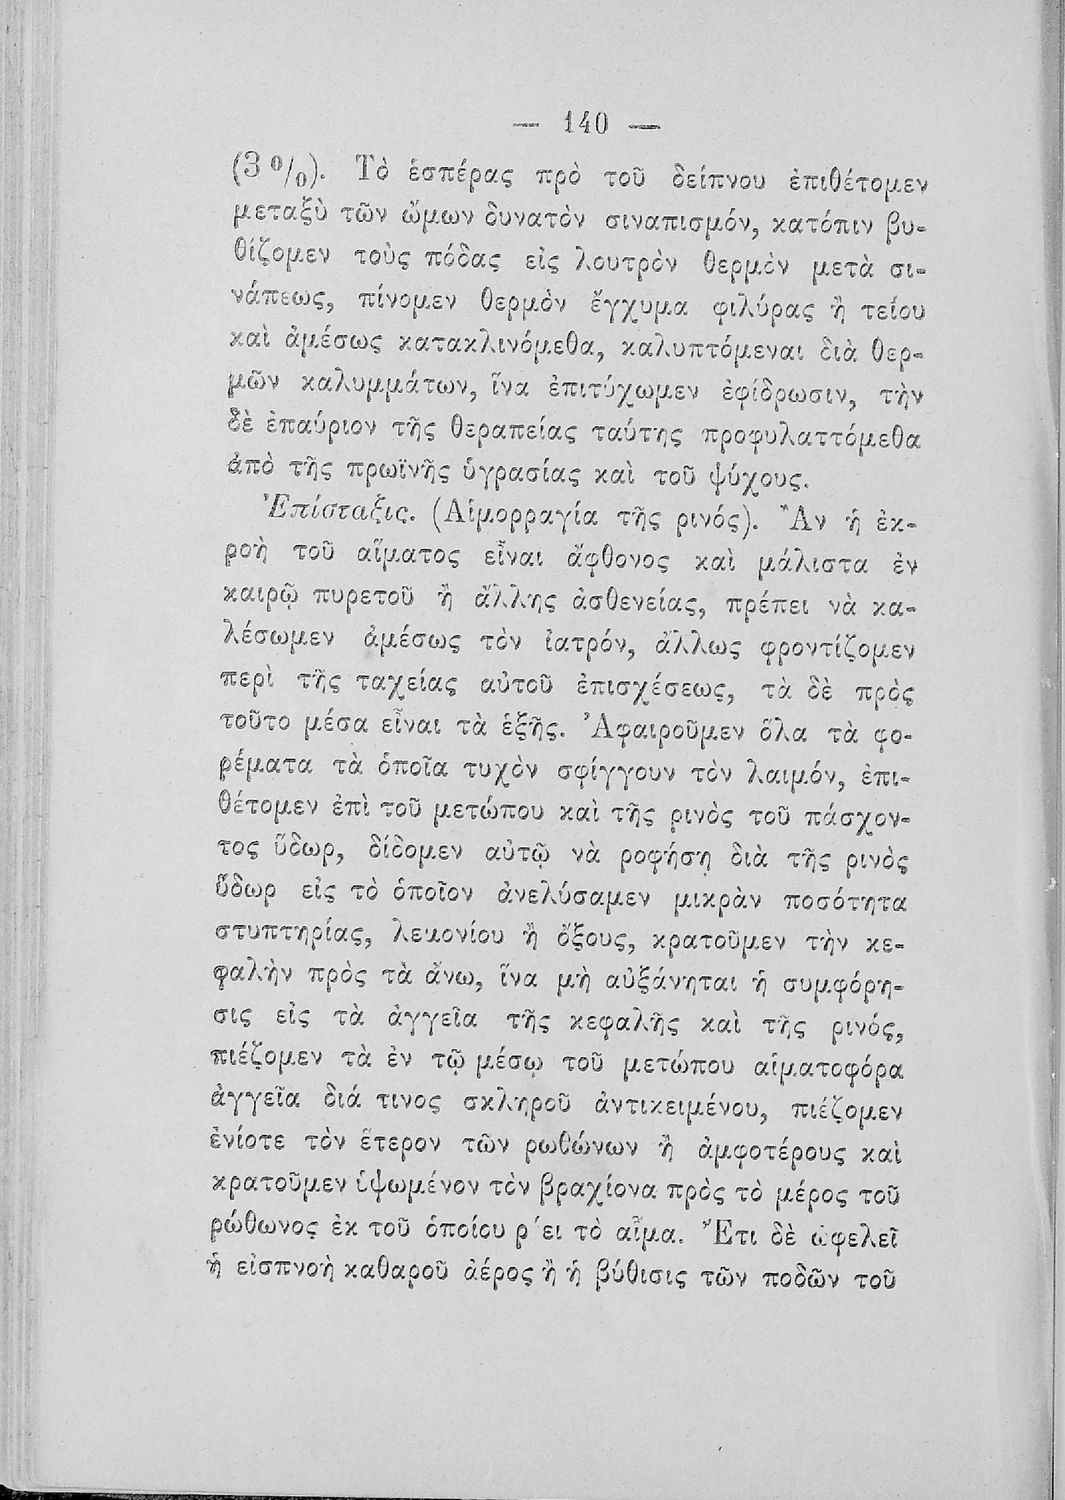 — 140 —
(3 %). Τὸ ἑσπέρας πρὸ τοῦ δείπνου ἐπιθέτομεν
μεταξὺ τῶν ὤμων δυνατὸν σιναπισμόν, κατόπιν βυ-
θίζομεν τοὺς πόδας εἰς λουτρὸν θερμὸν μετὰ σι-
νάπεως, πίνομεν θερμὸν ἔγχυμα φιλύρας ἢ τείου
καὶ ἀμέσως κατακλινόμεθα, καλυπτόμεναι διὰ θερ-
μῶν καλυμμάτων, ἵνα ἐπιτύχωμεν ἐφίδρωσιν, τὴν
δὲ ἐπαύριον τῆς θεραπείας ταύτης προφυλαττόμεθα
ἀπὸ τῆς πρωϊνῆς ὑγρασίας καὶ τοῦ ψύχους.
Ἐπίσταξις. (Αἱμορραγία τῆς ρινός). Ἂν ἡ ἐκ-
ροὴ τοῦ αἵματος εἶναι ἄφθονος καὶ μάλιστα ἐν
καιρῷ πυρετοῦ ἢ ἄλλης ἀσθενείας, πρέπει νὰ κα-
λέσωμεν ἀμέσως τὸν ἰατρόν, ἄλλως φροντίζομεν
περὶ τῆς ταχείας αὐτοῦ ἐπισχέσεως, τὰ δὲ πρὸς
τοῦτο μέσα εἶναι τὰ ἑξῆς. Ἀφαιροῦμεν ὅλα τὰ φο-
ρέματα τὰ ὁποῖα τυχὸν σφίγγουν τὸν λαιμόν, ἐπι-
θέτομεν ἐπὶ τοῦ μετώπου καὶ τῆς ρινὸς τοῦ πάσχον-
τος ὕδωρ, δίδομεν αὐτῷ νὰ ροφήσῃ διὰ τῆς ρινὸς
ὕδωρ εἰς τὸ ὁποῖον ἀνελύσαμεν μικρὰν ποσότητα
στυπτηρίας, λεμονίου ἢ ὄξους, κρατοῦμεν τὴν κε-
φαλὴν πρὸς τὰ ἄνω, ἵνα μὴ αὐξάνηται ἡ συμφόρη-
σις εἰς τὰ ἀγγεῖα τῆς κεφαλῆς καὶ τῆς ρινός,
πιέζομεν τὰ ἐν τῷ μέσῳ τοῦ μετώπου αἱματοφόρα
ἀγγεῖα διά τινος σκληροῦ ἀντικειμένου, πιέζομεν
ἐνίοτε τὸν ἕτερον τῶν ρωθώνων ἢ ἀμφοτέρους καὶ
κρατοῦμεν ὑψωμένον τὸν βραχίονα πρὸς τὸ μέρος τοῦ
ρώθωνος ἐκ τοῦ ὁποίου ρ΄ει τὸ αἷμα. Ἔτι δὲ ὠφελεῖ
ἡ εἰσπνοὴ καθαροῦ ἀέρος ἢ ἡ βύθισις τῶν ποδῶν τοῦ